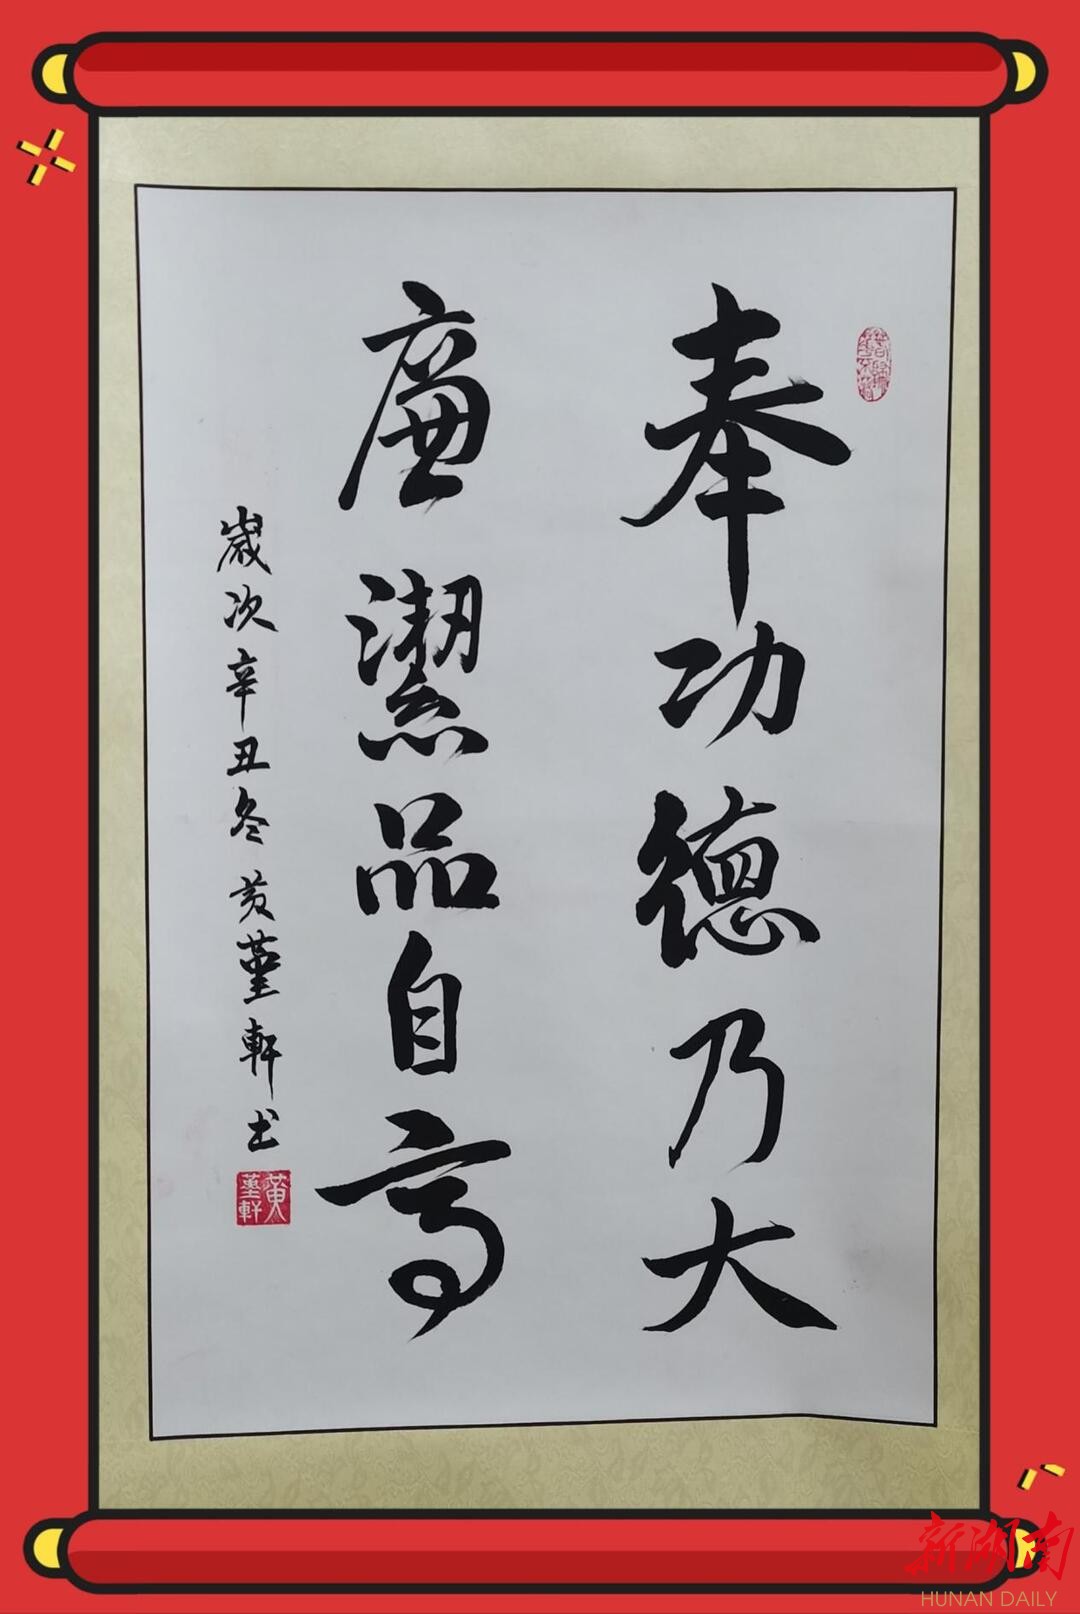 奉功德乃大
廉潔品自高
歲次辛丑冬 黄堇軒书
黄堇軒
新湖南
HUNAN DAILY